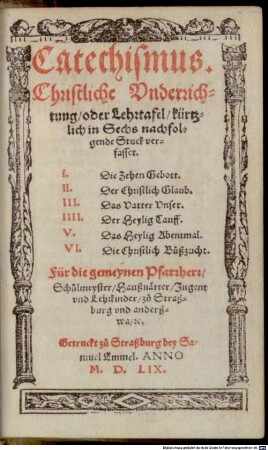 Catechismus.
Christliche Underrich-
tung/oder Lehrtafel/kürtz-
lich in Sechs nachfol-
gende Stuck ver-
fasset.
I. Die Zehen Gebott.
II. Der Christlich Glaub.
III. Das Vatter Unser.
IIII. Der Heylig Tauff.
V. Das Heylig Abentmal.
VI. Die Christlich Bůßzucht.
Für die gemeynen Pfarrherr/
Schůlmeyster/Haußvätter/Jugent
und Lehrkinder/zů Straß-
burg und anderß-
wa/ꝛc.
Getruckt zů Straßburg bey Sa-
muel Emmel. ANNO
M. D. LIX.